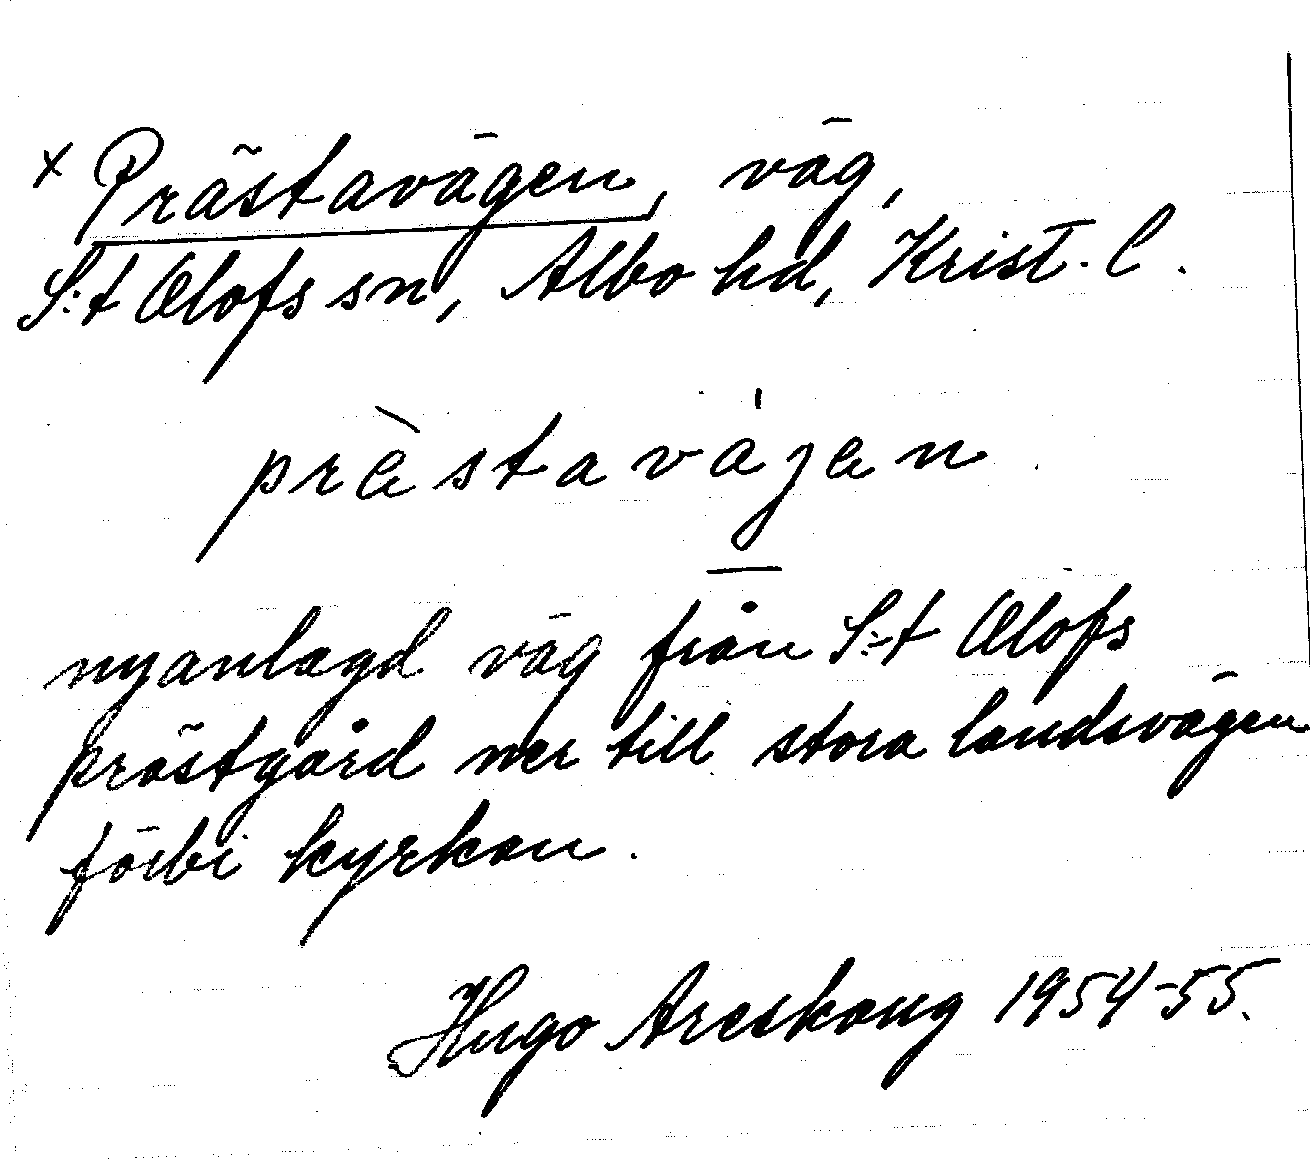 × Prästavägen, väg,
S:t Olofs sn, Albo hd, Krist. l.
prästavájen
nyanlagd väg från S:t Olofs
prästgård ner till stora landsvägen
förbi kyrkan.
Hugo Areskoug 1954-55.